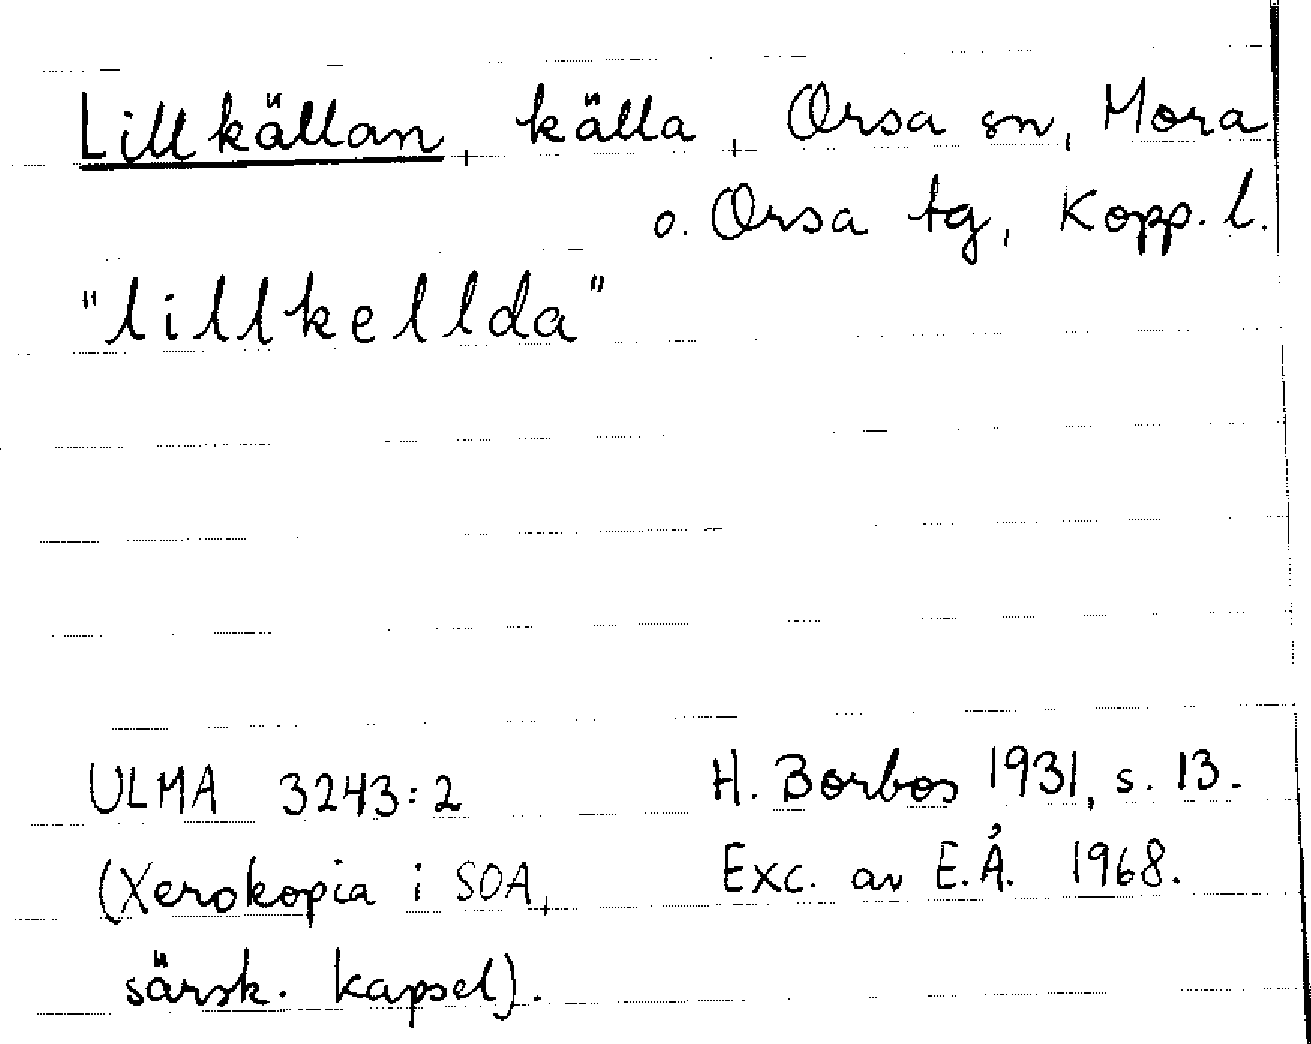 Lillkällan, källa, Orsa sn, Mora
o. Orsa tg, Kopp. l.
"lillkellda"
ULMA 3243:2 H. Borbos 1931, s. 13.
(Xerokopia i SOA, Exc. av E.Å. 1968.
särsk. kapsel).